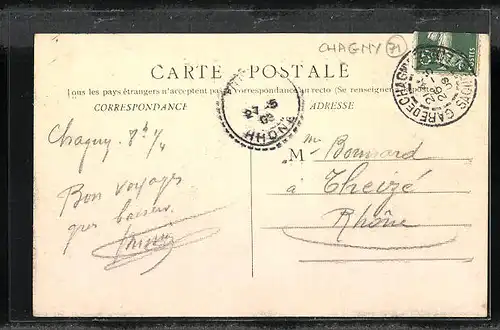 CHAGNY 71
CARTE POSTALE
Tous les pays étrangers n'acceptent pas la correspondance au recto (Se renseigner
CORRESPONDANCE
ADRESSE
RHONE
GARE DE CHAGNY
POSTES
Chagny
Bon voyage
gros baisers
M Bonnard
à Theizé
Rhône